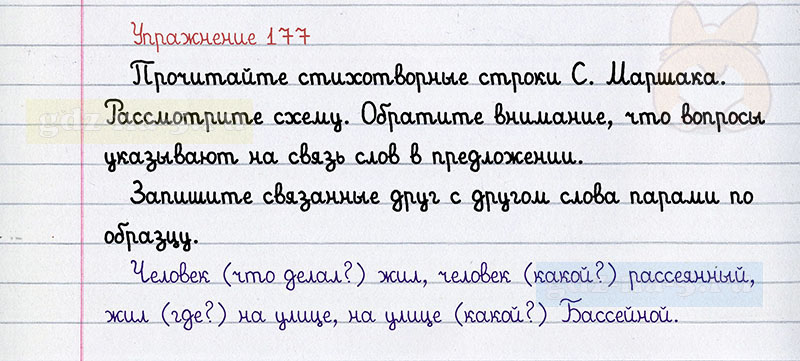 Упражнение 177
Прочитайте стихотворные строки С. Маршака.
Рассмотрите схему. Обратите внимание, что вопросы
указывают на связь слов в предложении.
Запишите связанные друг с другом слова парами по
образцу.
Человек (что делал?) жил, человек (какой?) рассеянный,
жил (где?) на улице, на улице (какой?) Бассейной.